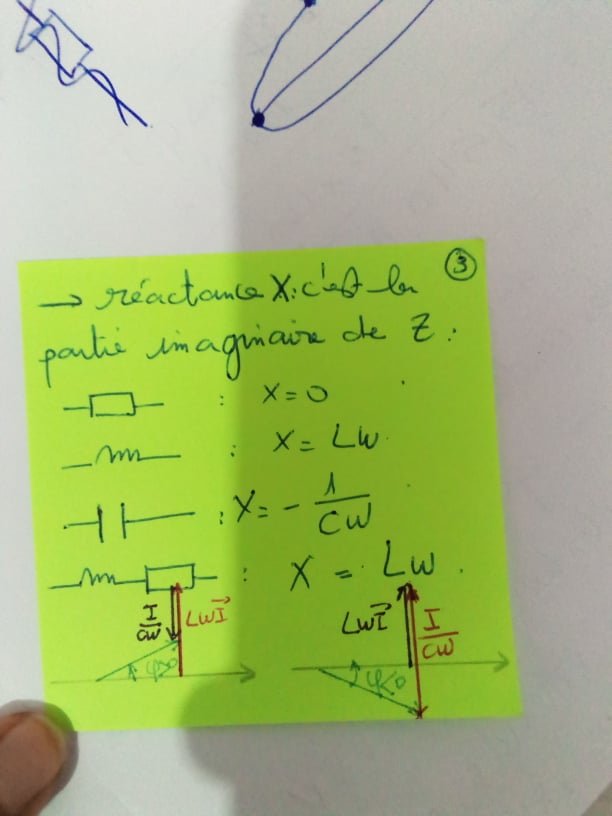 ③
→ réactance X: c'est la
partie imaginaire de Z :
: X = 0
: X = Lω
: X = - 1/Cω
: X = Lω .
I/Cω LωI⃗ LωI⃗ I/Cω
φ>0 φ<0